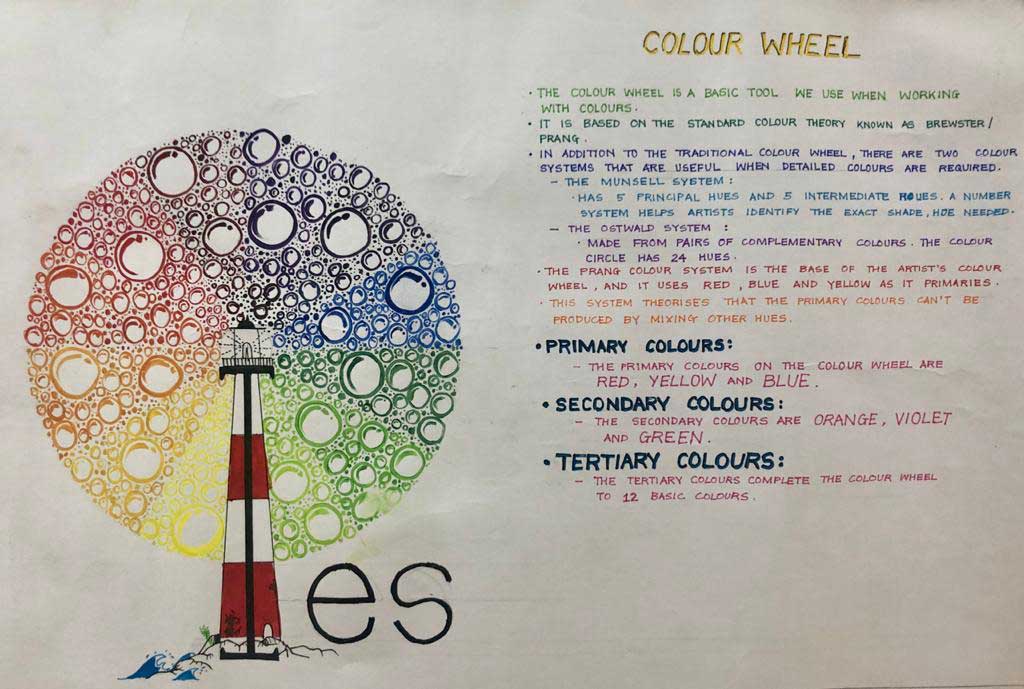 COLOUR WHEEL
· THE COLOUR WHEEL IS A BASIC TOOL WE USE WHEN WORKING
WITH COLOURS.
· IT IS BASED ON THE STANDARD COLOUR THEORY KNOWN AS BREWSTER/
PRANG.
· IN ADDITION TO THE TRADITIONAL COLOUR WHEEL, THERE ARE TWO COLOUR
SYSTEMS THAT ARE USEFUL WHEN DETAILED COLOURS ARE REQUIRED.
- THE MUNSELL SYSTEM:
· HAS 5 PRINCIPAL HUES AND 5 INTERMEDIATE HUES. A NUMBER
SYSTEM HELPS ARTISTS IDENTIFY THE EXACT SHADE, HUE NEEDED.
- THE OSTWALD SYSTEM :
· MADE FROM PAIRS OF COMPLEMENTARY COLOURS. THE COLOUR
CIRCLE HAS 24 HUES.
· THE PRANG COLOUR SYSTEM IS THE BASE OF THE ARTIST'S COLOUR
WHEEL, AND IT USES RED, BLUE AND YELLOW AS IT PRIMARIES.
· THIS SYSTEM THEORISES THAT THE PRIMARY COLOURS CAN'T BE
PRODUCED BY MIXING OTHER HUES.
• PRIMARY COLOURS:
- THE PRIMARY COLOURS ON THE COLOUR WHEEL ARE
RED, YELLOW AND BLUE.
• SECONDARY COLOURS:
- THE SECONDARY COLOURS ARE ORANGE, VIOLET
AND GREEN.
• TERTIARY COLOURS:
- THE TERTIARY COLOURS COMPLETE THE COLOUR WHEEL
TO 12 BASIC COLOURS.
es